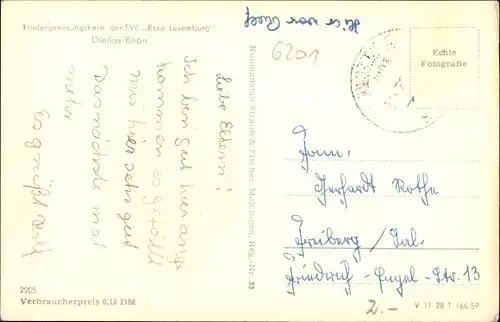 Kindergenesungsheim der SVK „Rosa Luxemburg"
Dietlas/Rhön
Liebe Eltern!
Ich bin gut hier ange
kommen es gefällt
mir hier sehr gut
Das nächste mal
mehr
Es grüßt
2205
Verbraucherpreis 0,15 DM
Kunstanstalt Straub & Fischer, Meiningen, Reg.-Nr. 23
6201
Echte
Fotografie
Fam.
Gerhardt Rothe
Freiberg / Sa.
Friedrich-Engel-Str. 13
2.-
V 11 28 T 166/59